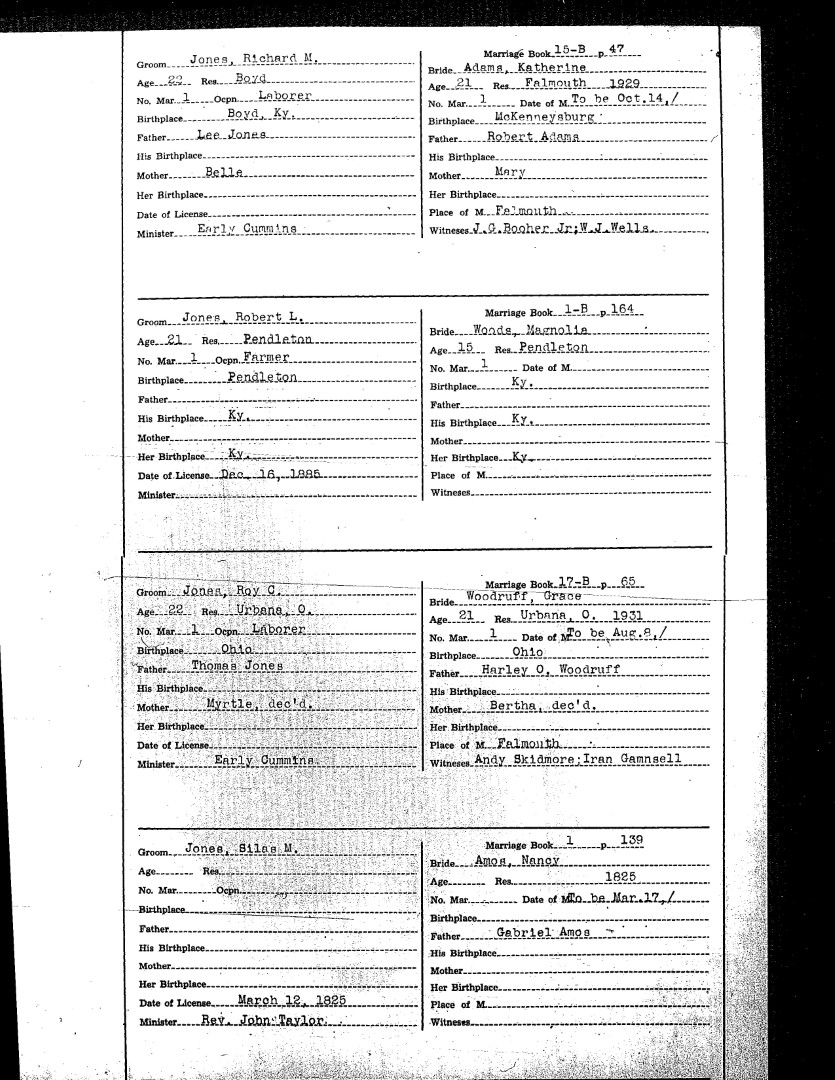 Groom Jones, Richard M.
Age 22 Res. Boyd
No. Mar. 1 Ocpn. Laborer
Birthplace Boyd, Ky.
Father Lee Jones
His Birthplace
Mother Belle
Her Birthplace
Date of License
Minister Early Cummins
Marriage Book 15-B p. 47
Bride Adams, Katherine
Age 21 Res. Falmouth 1929
No. Mar. 1 Date of M. To be Oct.14,/
Birthplace McKenneysburg
Father Robert Adams
His Birthplace
Mother Mary
Her Birthplace
Place of M. Falmouth
Witnesses J.G.Booher Jr;W.J.Wells.
Groom Jones, Robert L.
Age 21 Res. Pendleton
No. Mar. 1 Ocpn. Farmer
Birthplace Pendleton
Father
His Birthplace Ky.
Mother
Her Birthplace Ky.
Date of License Dec. 16, 1885
Minister
Marriage Book 1-B p. 164
Bride Woods, Magnolia
Age 15 Res. Pendleton
No. Mar. 1 Date of M.
Birthplace Ky.
Father
His Birthplace Ky.
Mother
Her Birthplace Ky.
Place of M.
Witneses
Groom Jones, Roy C.
Age 22 Res. Urbana, O.
No. Mar. 1 Ocpn. Laborer
Birthplace Ohio
Father Thomas Jones
His Birthplace
Mother Myrtle, dec'd.
Her Birthplace
Date of License
Minister Early Cummins
Marriage Book 17-B p. 65
Bride Woodruff, Grace
Age 21 Res. Urbana, O. 1931
No. Mar. 1 Date of M. To be Aug.8,/
Birthplace Ohio
Father Harley O. Woodruff
His Birthplace
Mother Bertha, dec'd.
Her Birthplace
Place of M. Falmouth
Witneses Andy Skidmore;Iran Gamnsell
Groom Jones, Silas M.
Age Res.
No. Mar. Ocpn.
Birthplace
Father
His Birthplace
Mother
Her Birthplace
Date of License March 12, 1825
Minister Rev. John Taylor
Marriage Book 1 p. 139
Bride Amos, Nancy
Age Res. 1825
No. Mar. Date of M. To be Mar.17,/
Birthplace
Father Gabriel Amos
His Birthplace
Mother
Her Birthplace
Place of M.
Witneses